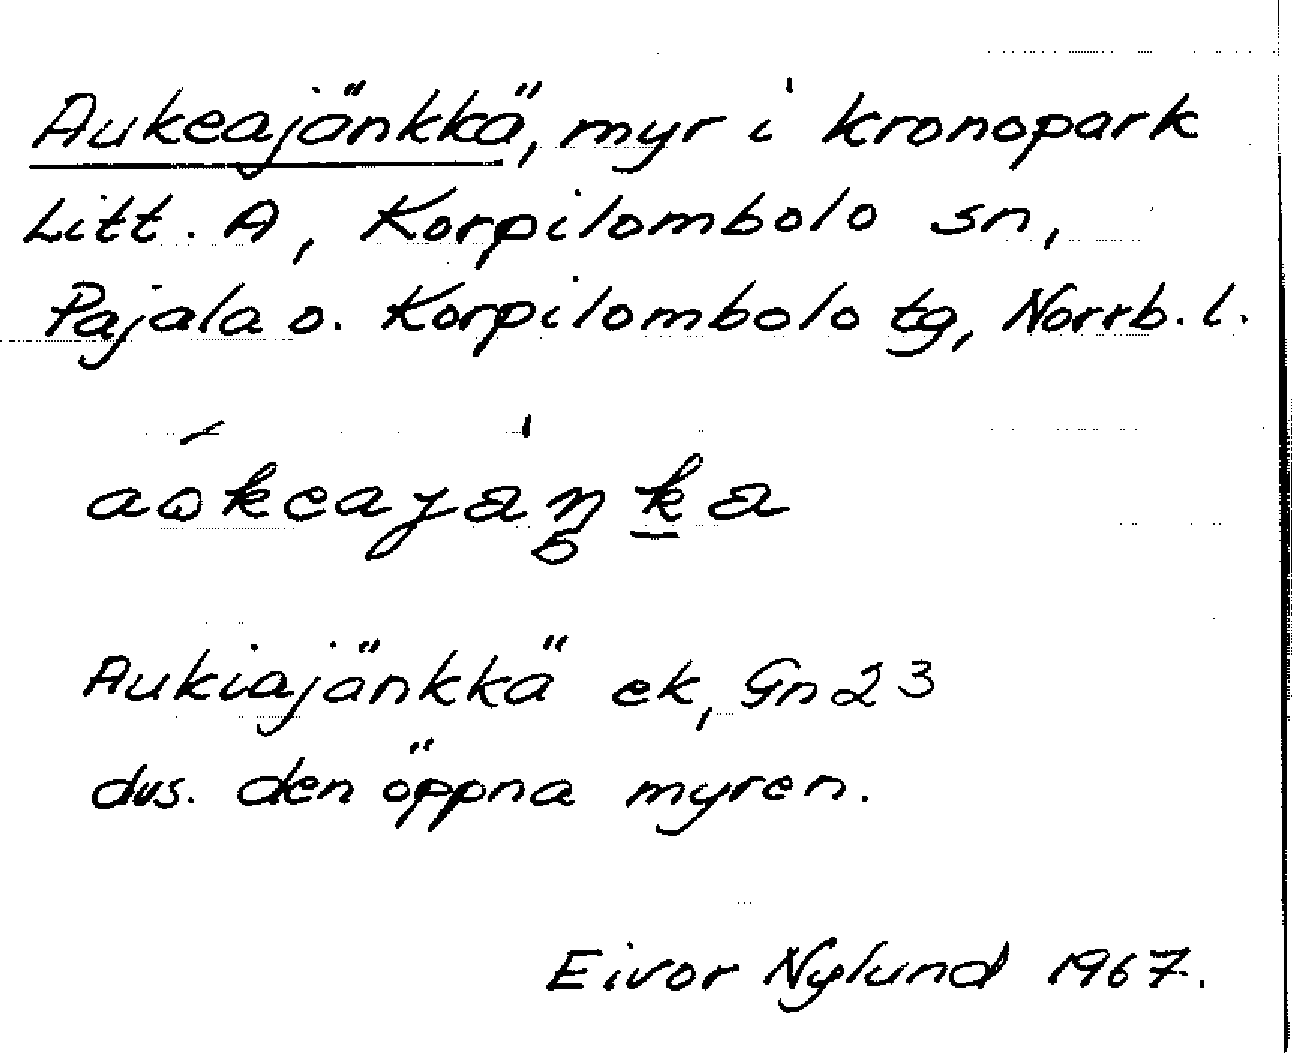 Aukeajänkkä, myr i kronopark
Litt. A, Korpilombolo sn,
Pajala o. Korpilombolo tg, Norrb. l.
Aukiajänkkä ek, Gn 23
dvs. den öppna myren.
Eivor Nylund 1967.